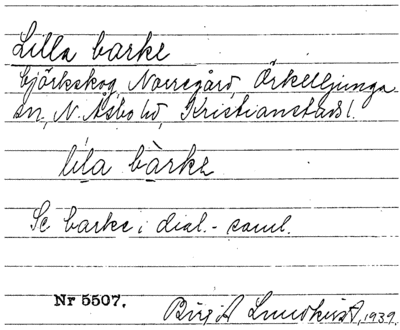 Lilla barke
björkskog, Norregård, Örkelljunga
sn, N. Åsbo hd, Kristianstads l.
lila bàrke
Se barke i dial.-saml.
Nr 5507.
Birgit Lundkvist, 1939.